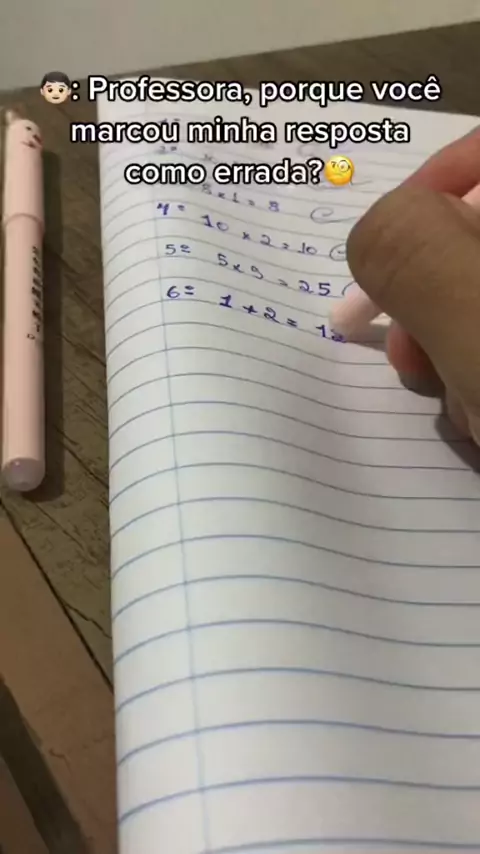 👦🏻: Professora, porque você
marcou minha resposta
como errada?🧐
8 x 1 = 8
4º 10 x 2 = 10
5º 5 x 5 = 25
6º 1 + 2 = 12